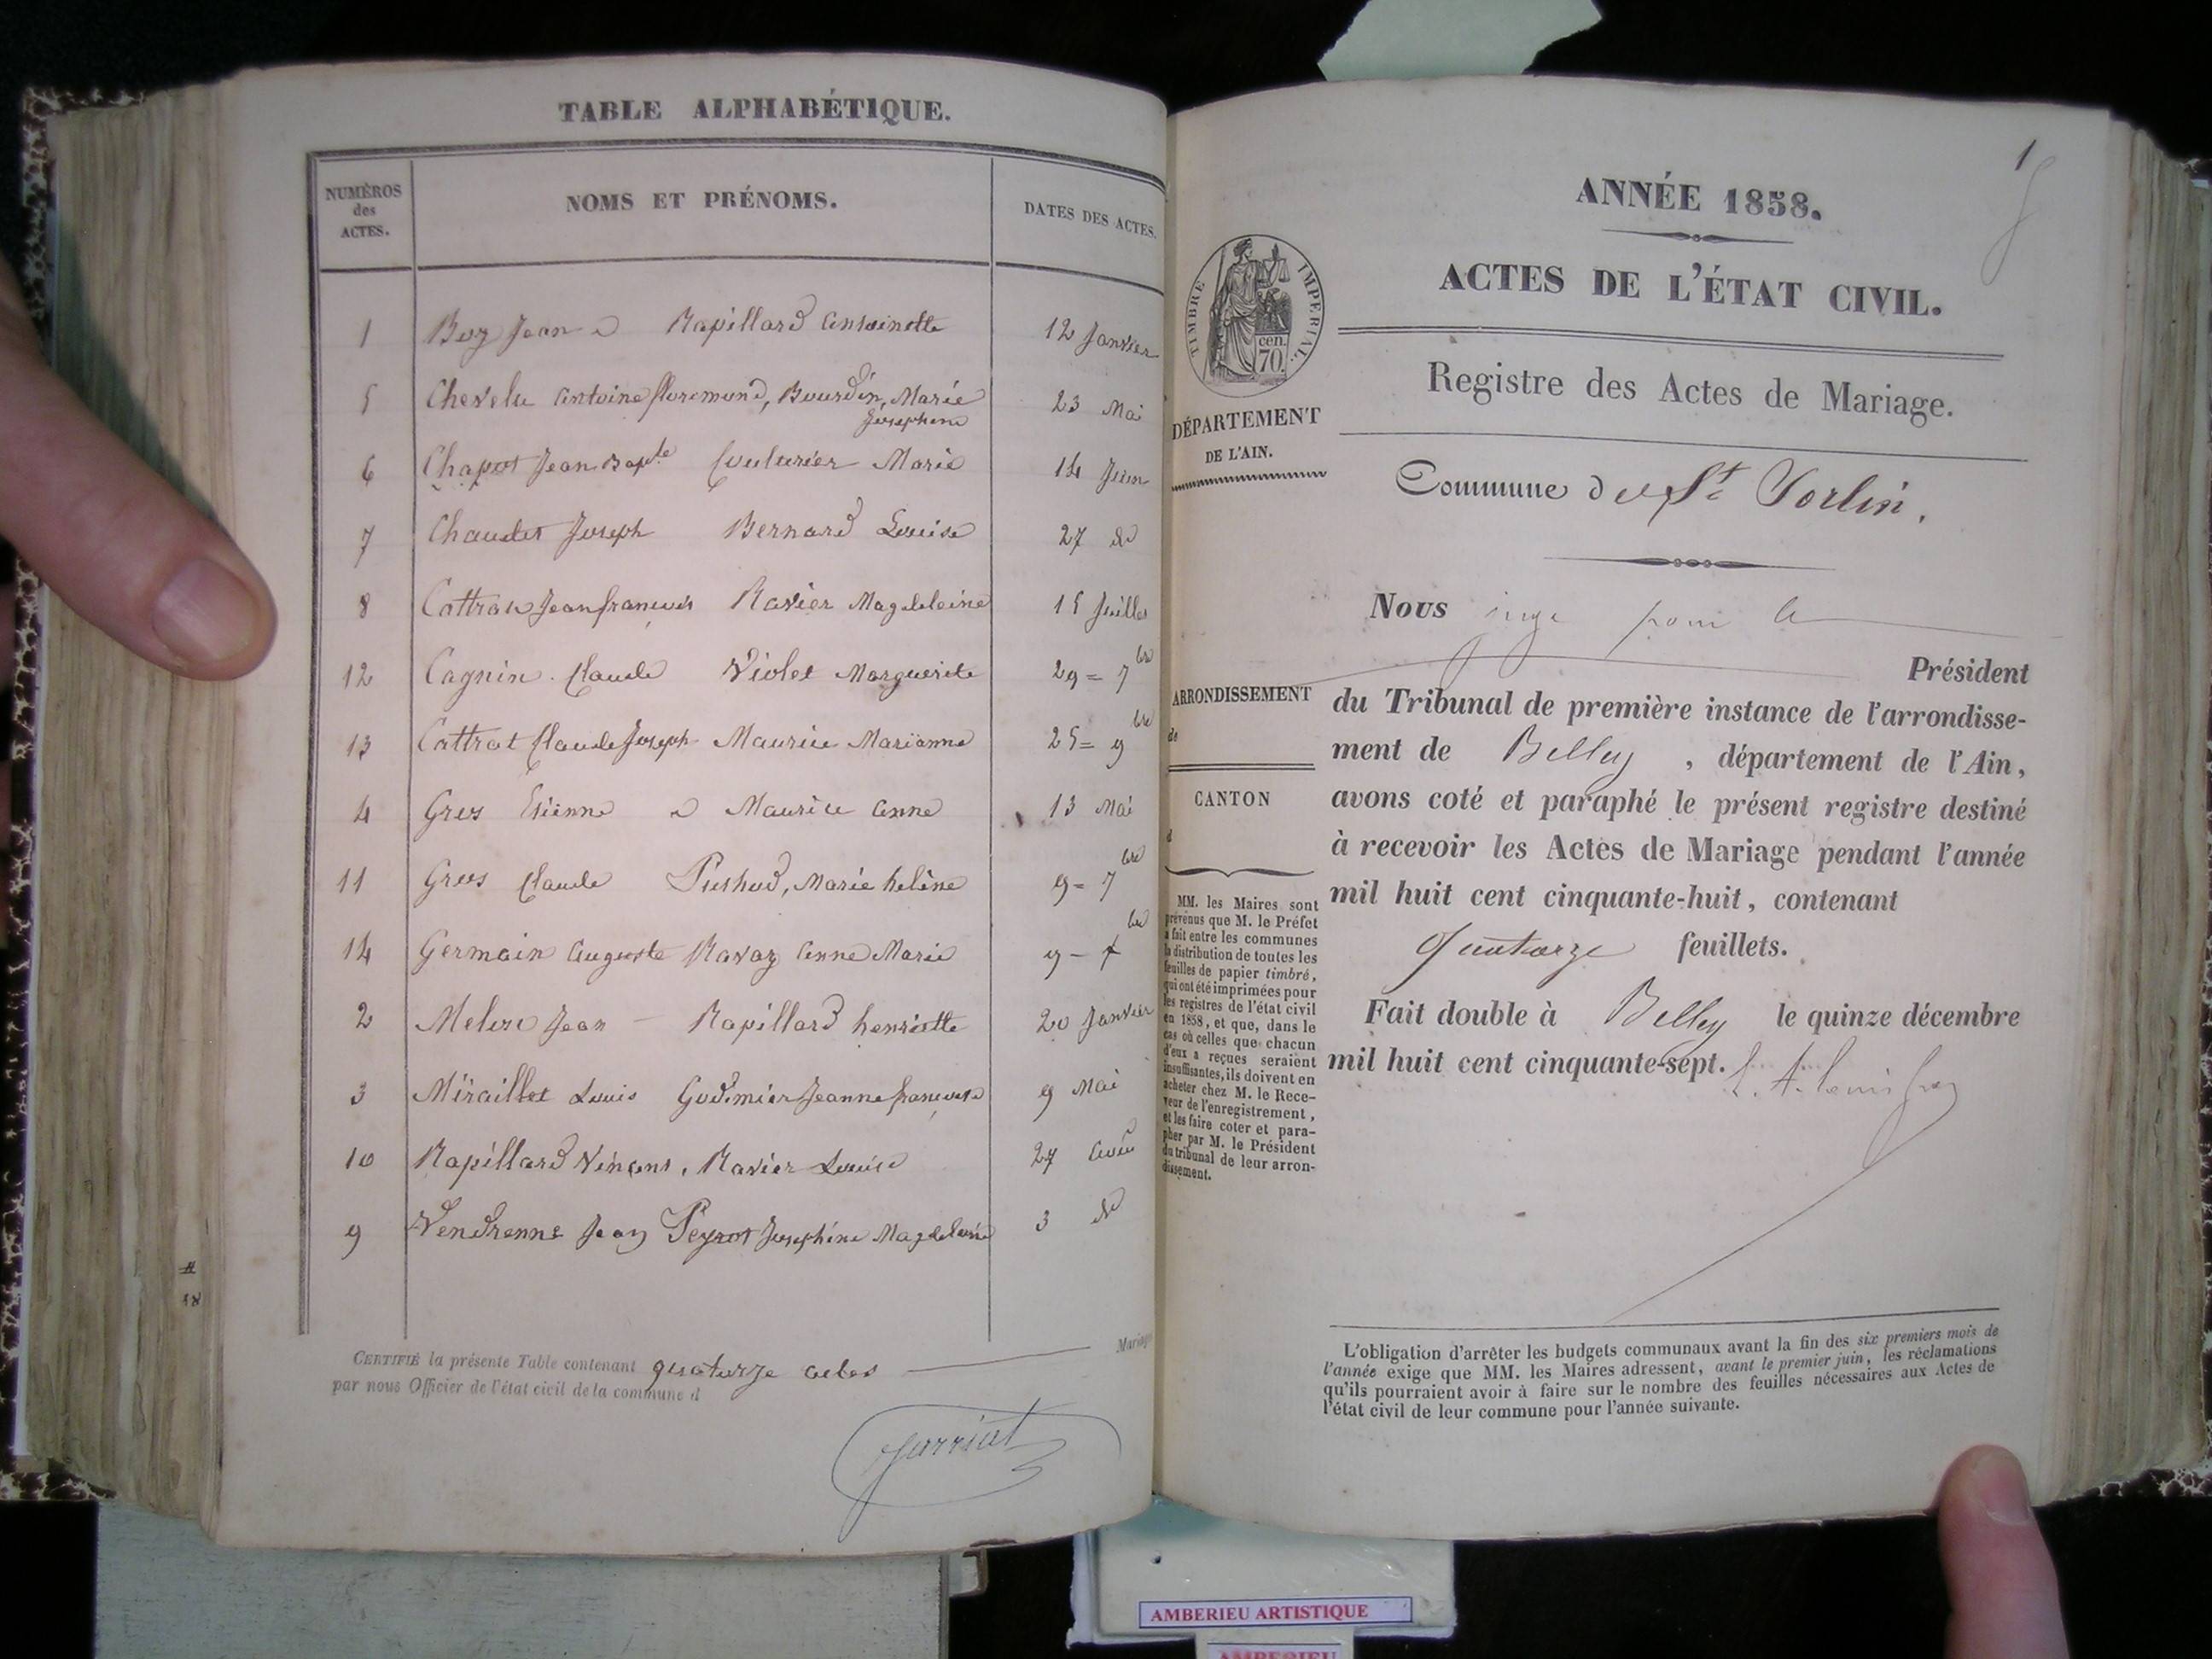 TABLE ALPHABÉTIQUE.
NUMÉROS des ACTES.
NOMS ET PRÉNOMS.
DATES DES ACTES.
1 Boz Jean a Rapillard Antoinette 12 Janvier
5 Chevelu Antoine floremond, Bourdin, Marie Josephine 23 Mai
6 Chapot Jean Bapte Couturier Marie 14 Juin
7 Chaudet Joseph Bernard Louise 27 do
8 Cottraux Jean françois Ravier Magdeleine 15 Juillet
12 Cagnin Claude Violet Marguerite 29 = 7bre
13 Cottrat Claude Joseph Maurice Marianne 25 = 9bre
4 Gros Etienne a Maurice Anne 13 Mai
11 Gros Claude Marie helène 9 = 7bre
14 Germain Auguste Ravaz Anne Marie 9 - bre
2 Jean - Rapillard henriette 20 Janvier
3 Miraillet Louis Godimier Jeanne françoise 9 Mai
10 Rapillard Vincent, Ravier Louise 27 Août
9 Vendrenne Jean Peyrot Josephine Magdeleine 3 do
Mariage
CERTIFIÉ la présente Table contenant quatorze actes
par nous Officier de l'état civil de la commune d
Jarriat
1
ANNÉE 1858.
ACTES DE L'ÉTAT CIVIL.
Registre des Actes de Mariage.
TIMBRE IMPERIAL
70 cen.
DÉPARTEMENT
DE L'AIN.
Commune de St Sorlin.
Nous juge pour le
Président
ARRONDISSEMENT
de
CANTON
d
du Tribunal de première instance de l'arrondisse-
ment de Belley, département de l'Ain,
avons coté et paraphé le présent registre destiné
à recevoir les Actes de Mariage pendant l'année
mil huit cent cinquante-huit, contenant
quatorze feuillets.
Fait double à Belley le quinze décembre
mil huit cent cinquante-sept.
MM. les Maires sont
prévenus que M. le Préfet
a fait entre les communes
la distribution de toutes les
feuilles de papier timbré,
qui ont été imprimées pour
les registres de l'état civil
en 1858, et que, dans le
cas où celles que chacun
d'eux a reçues seraient
insuffisantes, ils doivent en
acheter chez M. le Rece-
veur de l'enregistrement,
et les faire coter et para-
pher par M. le Président
du tribunal de leur arron-
dissement.
L'obligation d'arrêter les budgets communaux avant la fin des six premiers mois de
l'année exige que MM. les Maires adressent, avant le premier juin, les réclamations
qu'ils pourraient avoir à faire sur le nombre des feuilles nécessaires aux Actes de
l'état civil de leur commune pour l'année suivante.
AMBERIEU ARTISTIQUE
AMBERIEU